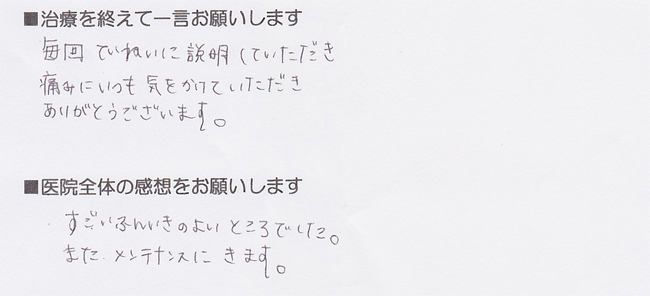 ■治療を終えて一言お願いします
毎回 ていねいに説明していただき
痛みにいつも気をかけていただき
ありがとうございます。
■医院全体の感想をお願いします
すごいふんいきのよいところでした。
また メンテナンスに きます。